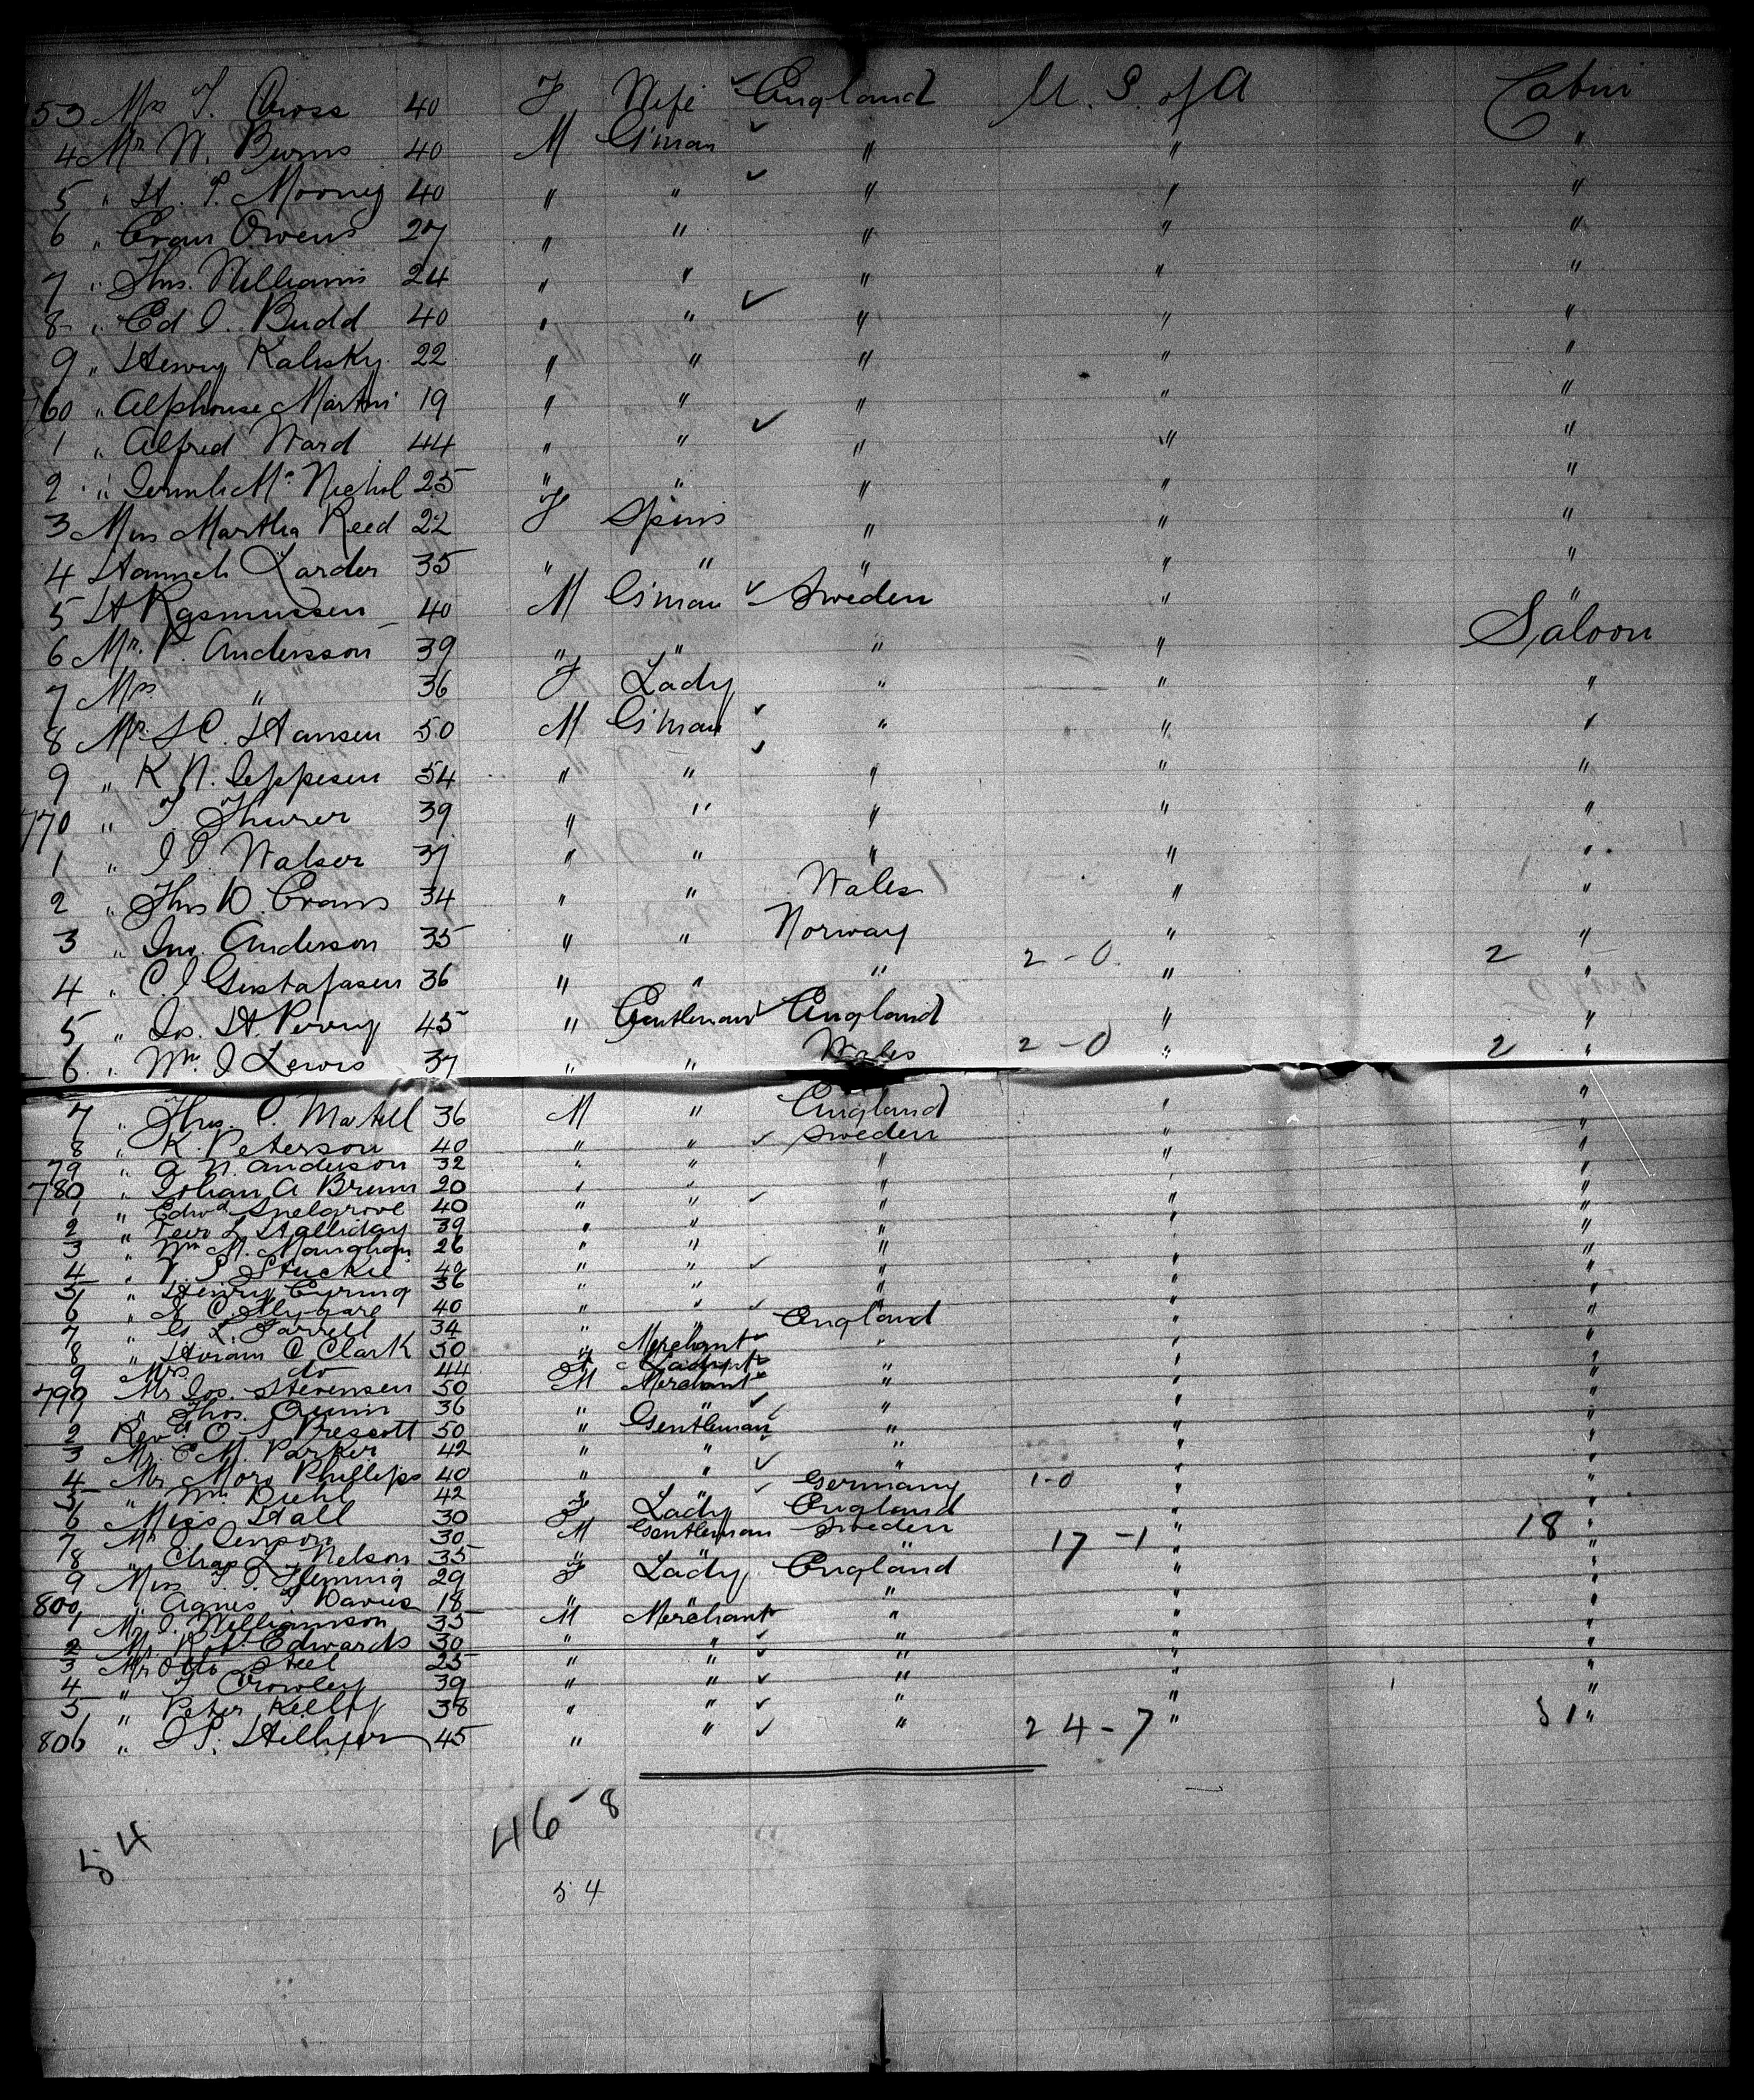 53 Mrs T. Cross 40 F Wife England U. S. of A Cabin
4 Mr W. Burns 40 M G'man " " "
5 " H. P. Mooney 40 " " " " "
6 " Evan Owens 27 " " " " "
7 " Thos. Williams 24 " " " " "
8 " Ed J. Budd 40 " " " " "
9 " Henry Kalisky 22 " " " " "
760 " Alphonse Martin 19 " " " " "
1 " Alfred Ward 44 " " " " "
2 " Mc Nichol 25 " " " " "
3 Miss Martha Reed 22 F Spins " " "
4 Hannah Larder 35 " " " " "
5 H Rasmussen 40 M G'man Sweden " "
6 Mr. P. Andersson 39 " " " " Saloon
7 Mrs " 36 F Lady " " "
8 Mr H C. Hansen 50 M G'man " " "
9 " K N. Jeppesen 54 " " " " "
770 " T. Thurer 39 " " " " "
1 " J J. Walser 37 " " " " "
2 " Thos D. Evans 34 " " Wales " "
3 " Jno. Anderson 35 " " Norway " "
2 - 0 2
4 " C. J Gustafasen 36 " " " " "
5 " Jos. H. Perry 45 " Gentleman England " "
6 " Wm. J Lewis 37 " " Wales 2 - 0 " 2 "
7 " Thos. C. Martell 36 M " England " "
8 " K. Peterson 40 " " Sweden " "
79 " A N. Anderson 32 " " " " "
780 " Johan A Bruun 20 " " " " "
1 " Edwd Snelgrove 40 " " " " "
2 " L Halliday 39 " " " " "
3 " Wm M. Maughan 26 " " " " "
4 " V. S Stuckie 40 " " " " "
5 " Henry Eyring 36 " " " " "
6 " C. Nygare 40 " " " " "
7 " G. L. Farrell 34 " " England " "
8 " Hiram C Clark 50 " Merchant " " "
9 Mrs do 44 F Lady " " "
790 Mr Jos. Stevensen 50 M Merchant " " "
1 " Thos. Quinn 36 " " " " "
2 Revd O. S Prescott 50 " Gentleman " " "
3 Mr. C M. Parker 42 " " " " "
4 Mr Moro Phillips 40 " " " " "
5 " Wm Diehl 42 " " Germany 1-0 " "
6 Miss Hall 30 F Lady England " "
7 Mr J Jenson 30 M Gentleman Sweden " "
17 - 1 18
8 " Chas L. Nelson 35 " " " " "
9 Miss T. J. Fleming 29 F Lady England " "
800 " Agnes T Davies 18 " " " " "
1 Mr J. Williamson 35 M Merchant " " "
2 Mr Robt. Edwards 30 " " " " "
3 Mr Otto Steel 25 " " " " "
4 " T Crowley 39 " " " " "
5 " Peter Kelly 38 " " " " "
806 " J P. Hillyer 45 " " " 24-7 " 31 "
46-8
54
54